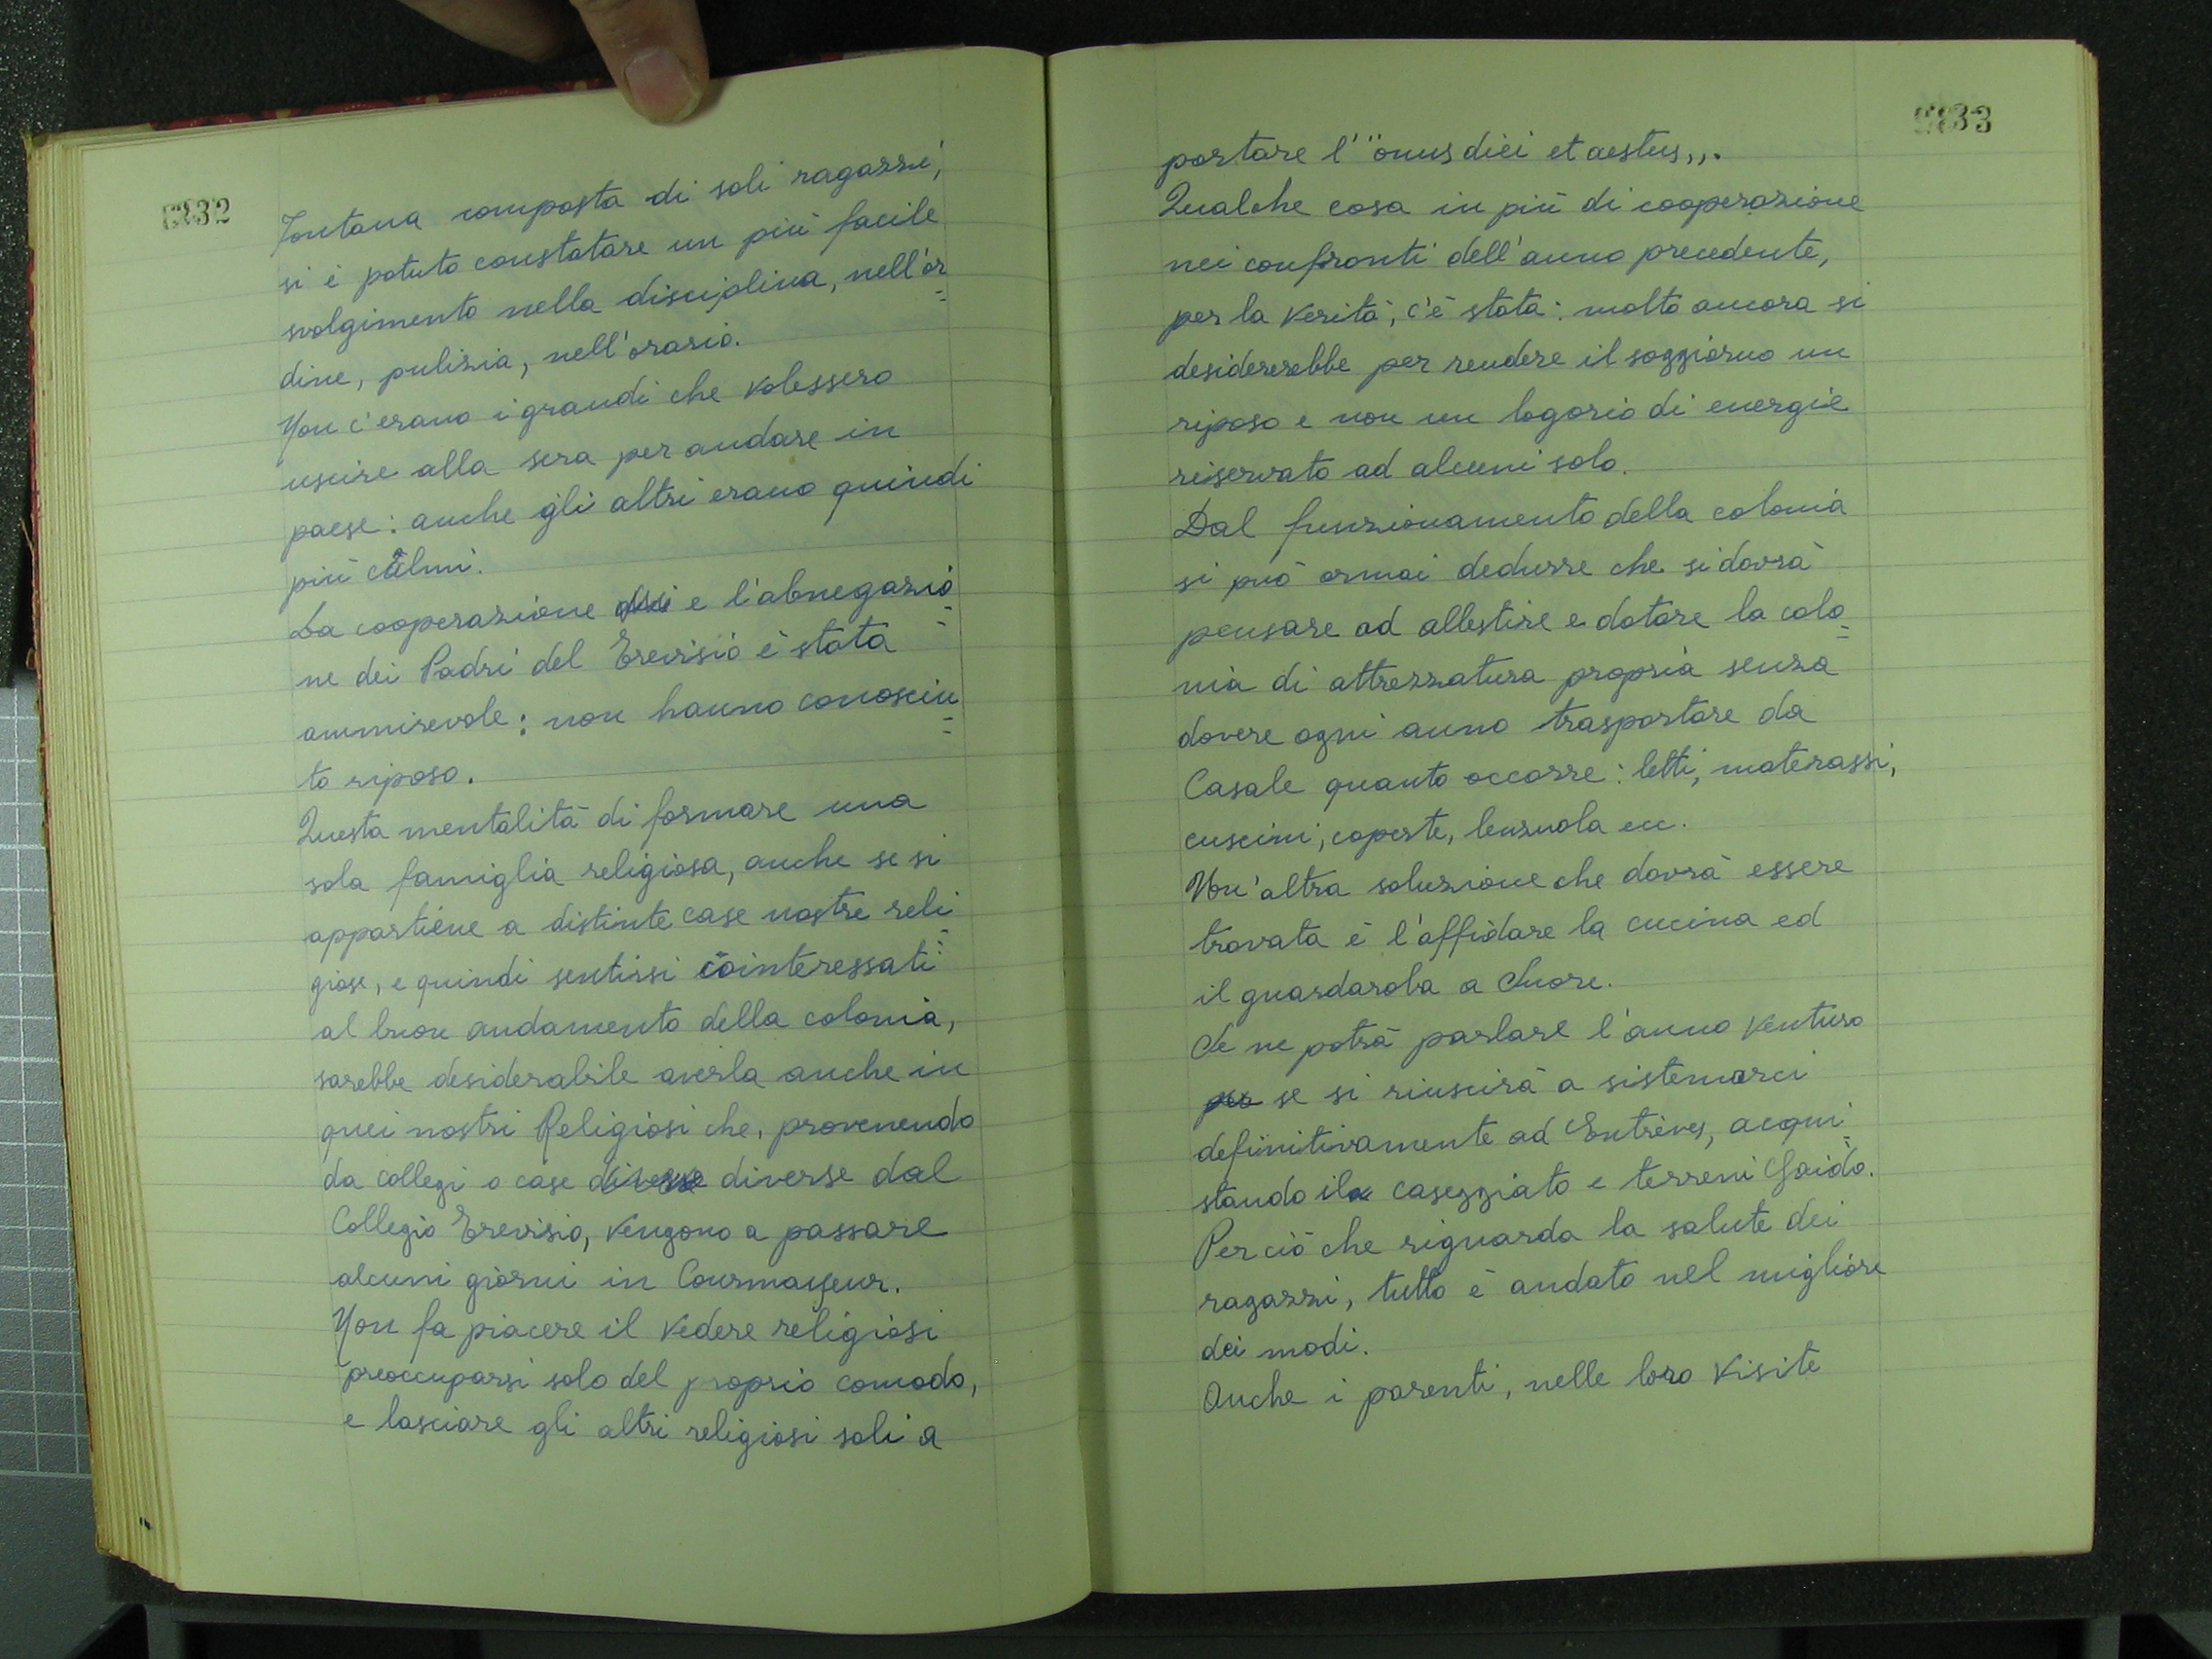 232
Fontana composta di soli ragazzi,
si è potuto constatare un più facile
svolgimento nella disciplina, nell'or=
dine, pulizia, nell'orario.
Non c'erano i grandi che volessero
uscire alla sera per andare in
paese: anche gli altri erano quindi
più calmi.
La cooperazione e l'abnegazio=
ne dei Padri del Trevisio è stata
ammirevole: non hanno conosciu=
to riposo.
Questa mentalità di formare una
sola famiglia religiosa, anche se si
appartiene a distinte case nostre reli=
giose, e quindi sentirsi cointeressati
al buon andamento della colonia,
sarebbe desiderabile averla anche in
quei nostri Religiosi che, provenendo
da collegi o case diverse diverse dal
Collegio Trevisio, vengono a passare
alcuni giorni in Courmayeur.
Non fa piacere il vedere religiosi
preoccuparsi solo del proprio comodo,
e lasciare gli altri religiosi soli a
233
portare l'"onus diei et aestus,,.
Qualche cosa in più di cooperazione
nei confronti dell'anno precedente,
per la verità, c'è stata: molto ancora si
desidererebbe per rendere il soggiorno un
riposo e non un logorio di energie
riservato ad alcuni solo.
Dal funzionamento della colonia
si può ormai dedurre che si dovrà
pensare ad allestire e dotare la colo=
nia di attrezzatura propria senza
dovere ogni anno trasportare da
Casale quanto occorre: letti, materassi,
cuscini, coperte, lenzuola ecc.
Un'altra soluzione che dovrà essere
trovata è l'affidare la cucina ed
il guardaroba a Suore.
Se ne potrà parlare l'anno venturo
per se si riuscirà a sistemarci
definitivamente ad Entrèves, acqui=
stando il caseggiato e terreni Gaido.
Per ciò che riguarda la salute dei
ragazzi, tutto è andato nel migliore
dei modi.
Anche i parenti, nelle loro visite